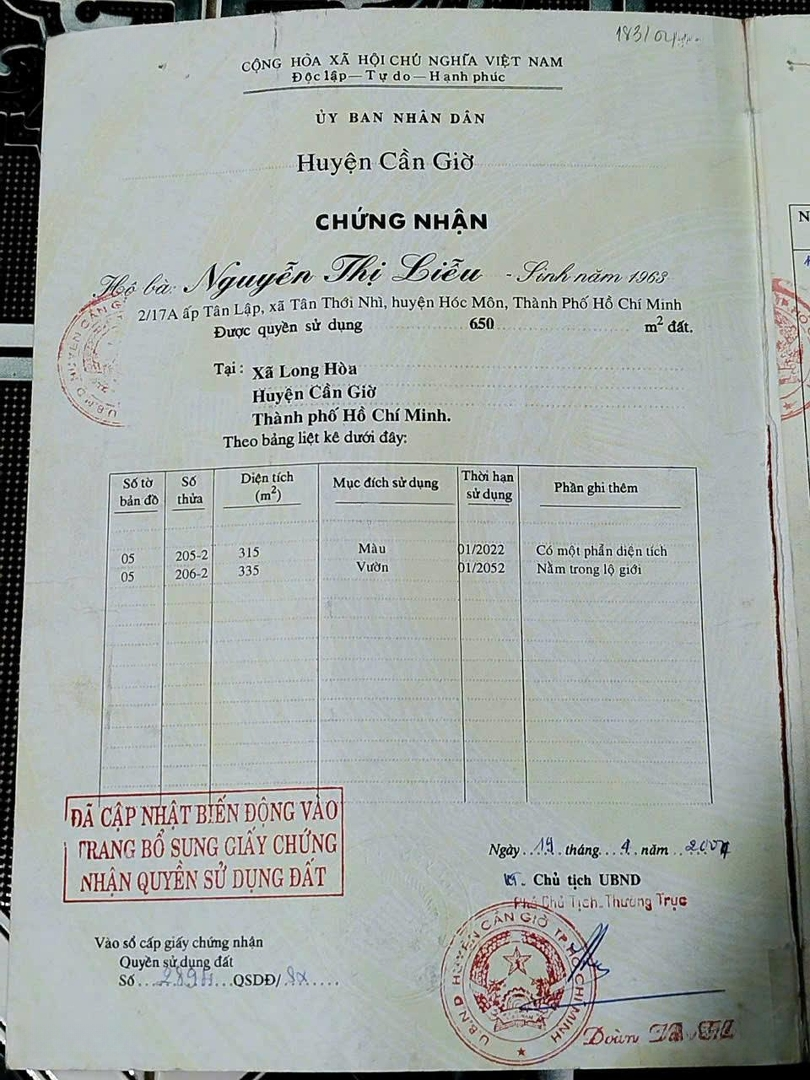 183/04
CỘNG HÒA XÃ HỘI CHỦ NGHĨA VIỆT NAM
Độc lập — Tự do — Hạnh phúc
ỦY BAN NHÂN DÂN
Huyện Cần Giờ
CHỨNG NHẬN
Hộ bà: Nguyễn Thị Liễu - Sinh năm 1963
2/17A ấp Tân Lập, xã Tân Thới Nhì, huyện Hóc Môn, Thành Phố Hồ Chí Minh
Được quyền sử dụng 650 m² đất.
Tại: Xã Long Hòa
Huyện Cần Giờ
Thành phố Hồ Chí Minh.
Theo bảng liệt kê dưới đây:
Số tờ bản đồ Số thửa Diện tích (m²) Mục đích sử dụng Thời hạn sử dụng Phần ghi thêm
05 205-2 315 Màu 01/2022 Có một phần diện tích
05 206-2 335 Vườn 01/2052 Nằm trong lộ giới
ĐÃ CẬP NHẬT BIẾN ĐỘNG VÀO
TRANG BỔ SUNG GIẤY CHỨNG
NHẬN QUYỀN SỬ DỤNG ĐẤT
Ngày 19 tháng 4 năm
KT. Chủ tịch UBND
Phó Chủ Tịch Thường Trực
Vào sổ cấp giấy chứng nhận
Quyền sử dụng đất
Số QSDĐ/
U.B.N.D HUYỆN CẦN GIỜ TP HỒ CHÍ MINH
Đoàn